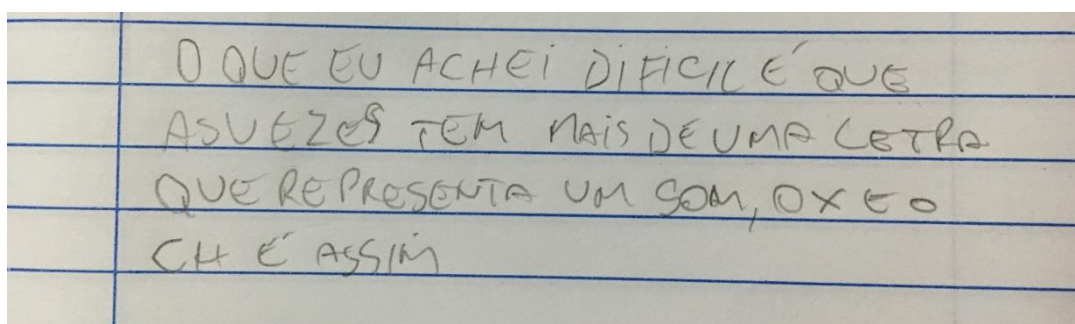 O QUE EU ACHEI DIFICIL É QUE
ASVEZES TEM MAIS DE UMA LETRA
QUE REPRESENTA UM SOM, O X E O
CH É ASSIM